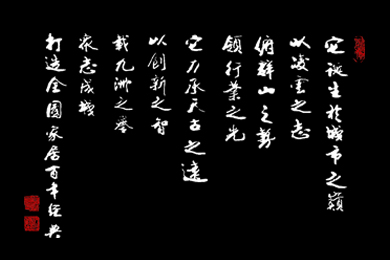 它诞生于城市之巅
以凌云之志
俯群山之势
领行业之光
它力承天古之远
以创新之智
载九洲之誉
众志成城
打造全国家居百年经典